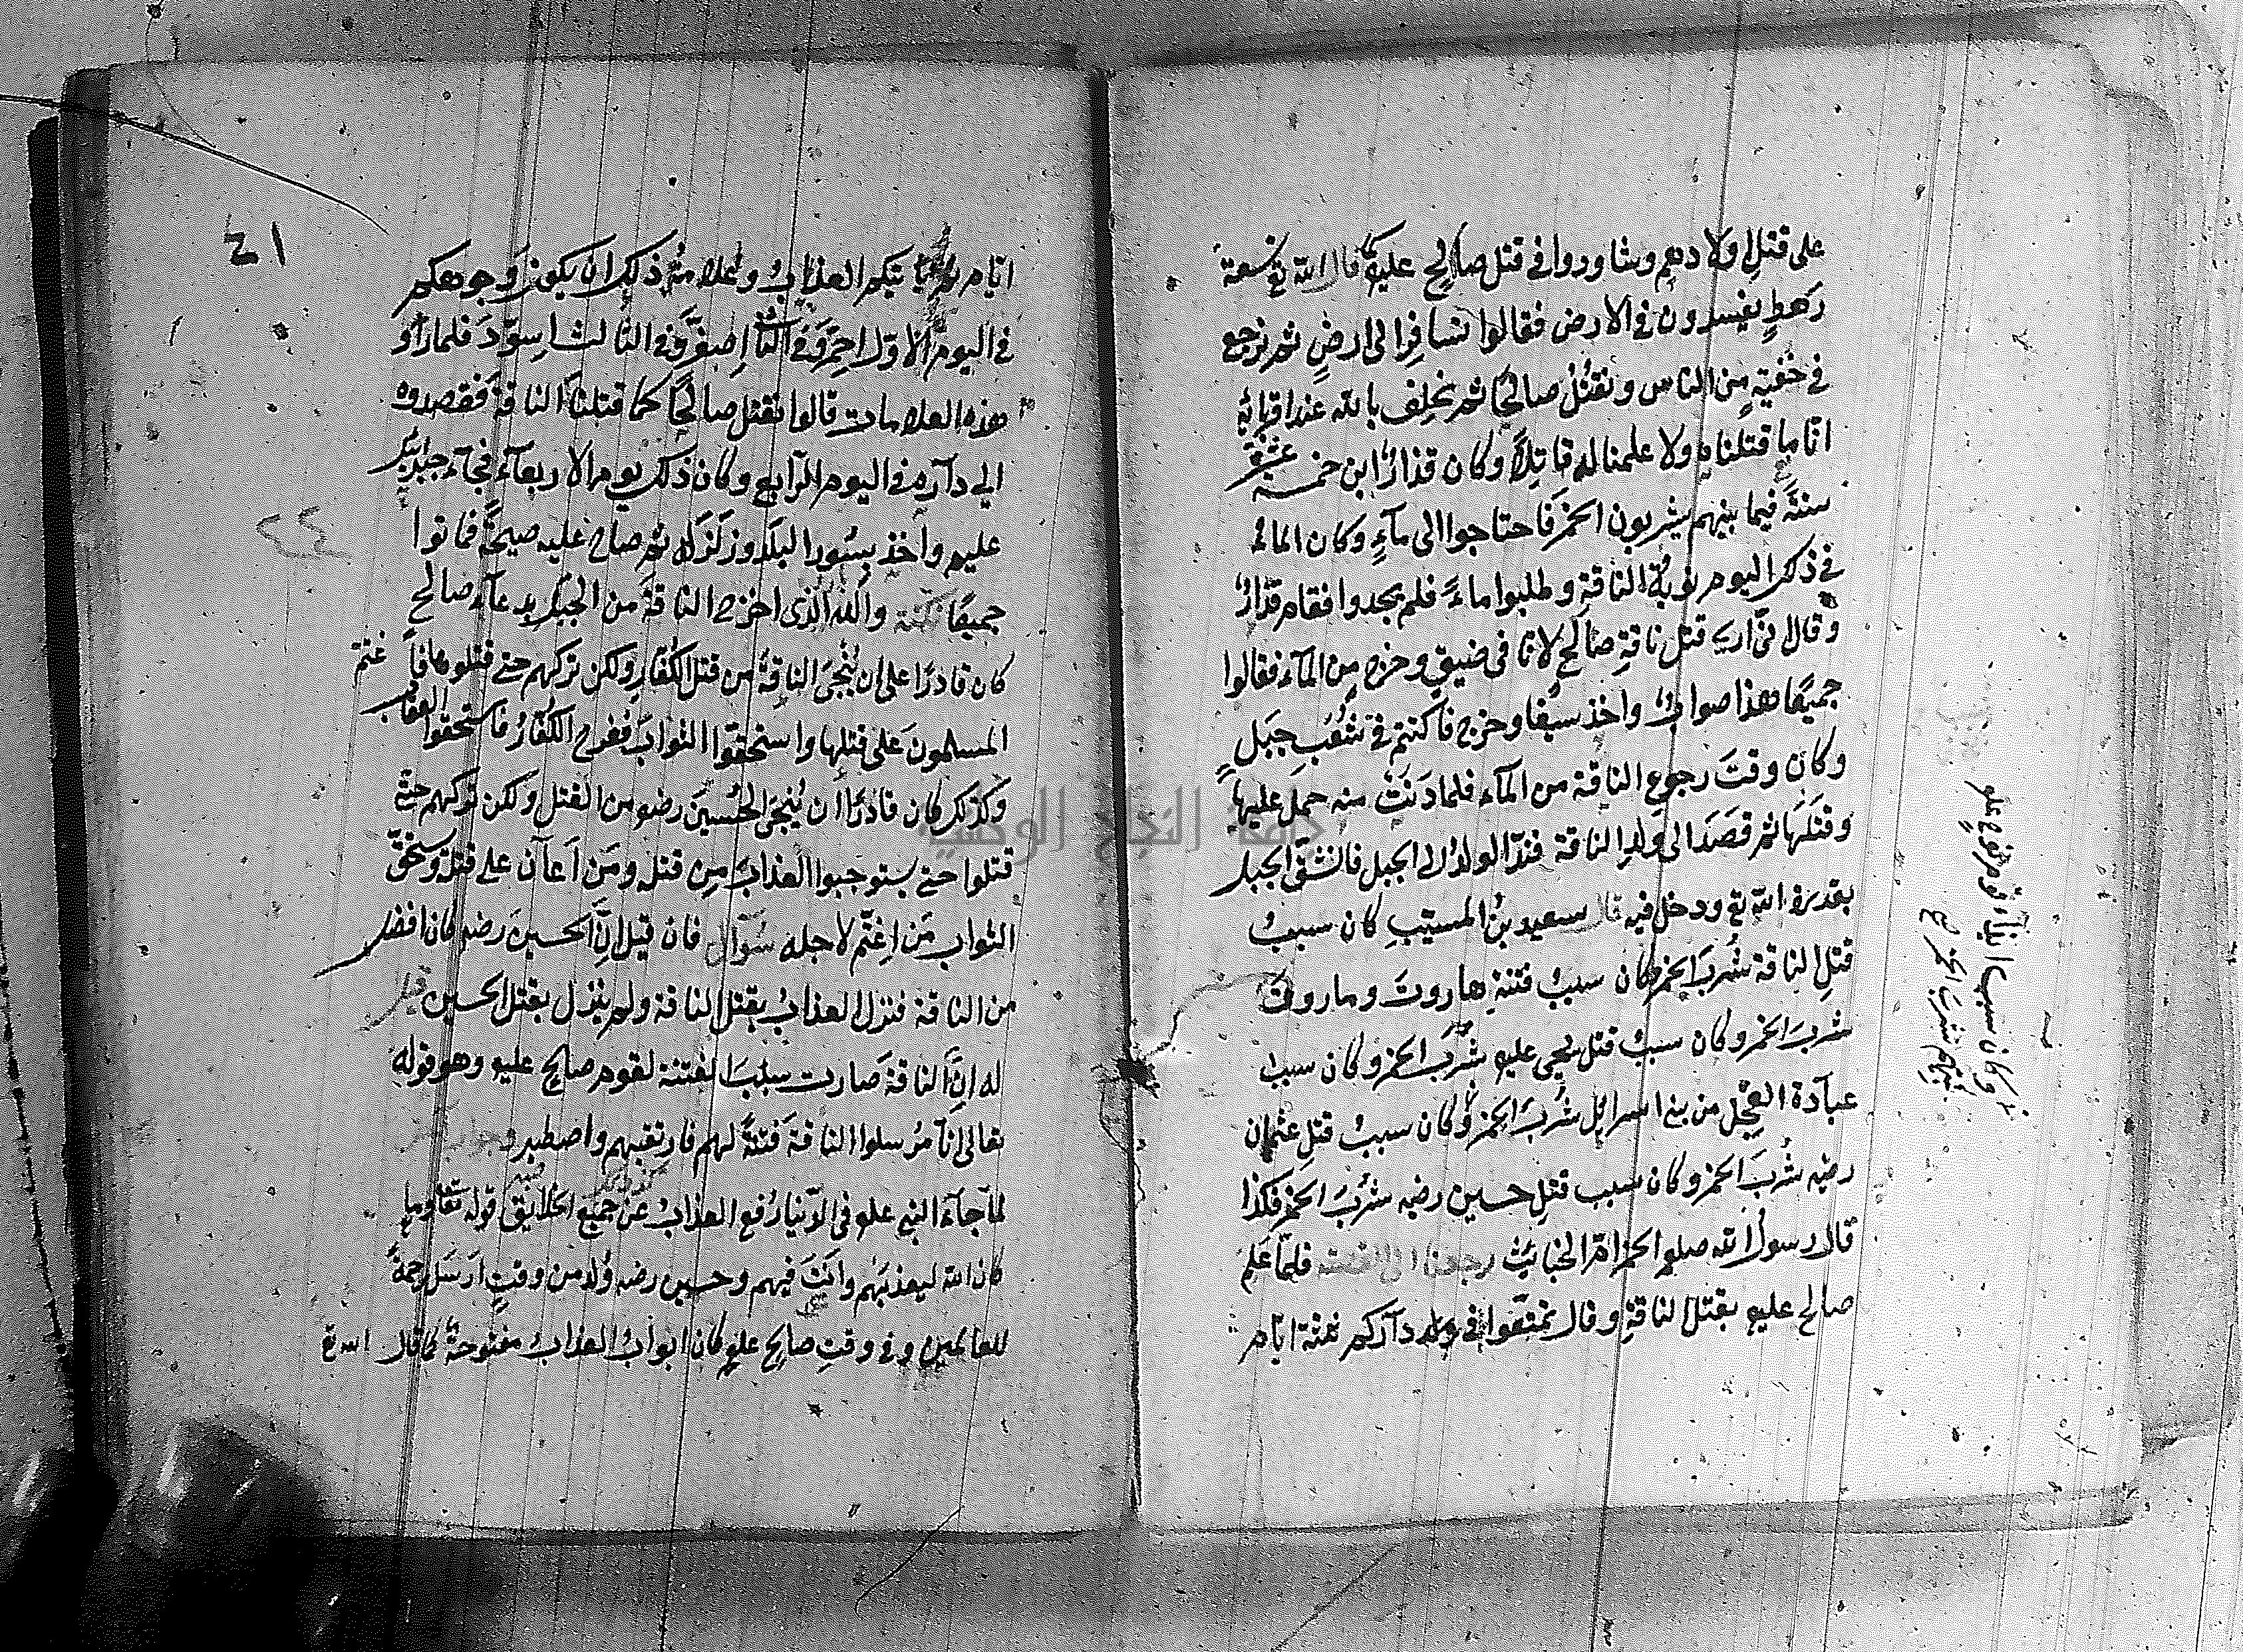 على قتل اولادهم وشاوروا في قتل صالح عليه كما قال الله تع تسعة
رهط يفسدون في الارض فقالوا نسافر الى ارض ثم نرجع
في خفية من الناس ونقتل صالحًا ثم نحلف بالله عند اقربائه
انّا ما قتلناه ولا علمنا له قاتلًا وكان قذار ابن خمسة عشرة
سنة فيما بينهم يشربون الخمر فاحتاجوا الى ماء وكان الماء
في ذكر اليوم نوبة الناقة وطلبوا ماءً فلم يجدوا فقام قدّار
وقال انّى ارى قتل ناقة صالح لانا فى ضيق وحرج من الماء فقالوا
جميعًا هذا صواب واخذ سيفا وخرج فاكنتم في شعب جبل
وكان وقت رجوع الناقة من الماء فلما دنت منه حمل عليها
وقتلها ثم قصد الى ولد الناقة فندّ الولد الى الجبل فانشق الجبل
بقدرة الله تع ودخل فيه قال سعيد بن المسيّب كان سبب
قتل الناقة شرب الخمر وكان سبب فتنة هاروت وماروت
شرب الخمر وكان سبب قتل يحيى عليه شرب الخمر وكان سبب
عبادة العجل من بنى اسرائل شرب الخمر وكان سبب قتل عثمان
رضه شرب الخمر وكان سبب قتل حسين رضه شرب الخمر فكذا
قال رسول الله صلعم الخمر امّ الخبائث رجعنا الى القصة فلمّا علم
صالح عليه بقتل الناقة وقال تمتّعوا في داركم ثلثة ايّام
وكان سبب ايذاء قوم نوح علو
شرب الخمر صح
٤١
ايّام يأتيكم العذاب وعلامة ذلك ان يكون وجوهكم
في اليوم الاوّل احمرّ وفي الثانى اصفرّ وفي الثالث اسوّد فلما رأوا
هذه العلامات قالوا نقتل صالحًا كما قتلنا الناقة فقصدوه
الى داره في اليوم الرابع وكان ذلك يوم الاربعاء فجاء جبرائيل
عليه واخذ بسور البلد وزلزله ثم صاح عليه صيحة فماتوا
جميعًا نكتة والله الذى اخرج الناقة من الجبل بدعاء صالح
كان قادرًا على ان ينجى الناقة من قتل الكفار ولكن تركهم حتى قتلوها فاغتمّ
المسلمون على قتلها واستحقّوا الثواب ففرح الكفّار فاستحقوا العقاب
وكذلك كان قادرًا ان ينجى الحسين رضه من القتل ولكن تركهم حتى
قتلوا حتى يستوجبوا العذاب من قتله ومن اعان على قتله ويستحقّ
الثواب من اغتمّ لاجله سوال فان قيل انّ الحسين رضه كان افضل
من الناقة فنزل العذاب بقتل الناقة ولم ينزل بقتل الحسين قيل
له انّ الناقة صارت سببًا لفتنة لقوم صالح عليه وهو قوله
تعالى انّا مرسلوا الناقة فتنةً لهم فارتقبهم واصطبر
لما جاء النبي علو فى الدنيا رفع العذاب عن جميع الخلايق قوله تعا وما
كان الله ليعذبهم وانت فيهم وحسين رضه ولد من وقت ارسل رحمة
للعالمين وفي وقت صالح علو كان ابواب العذاب مفتوحة كما قال الله تع
جامعة النجاح الوطنية